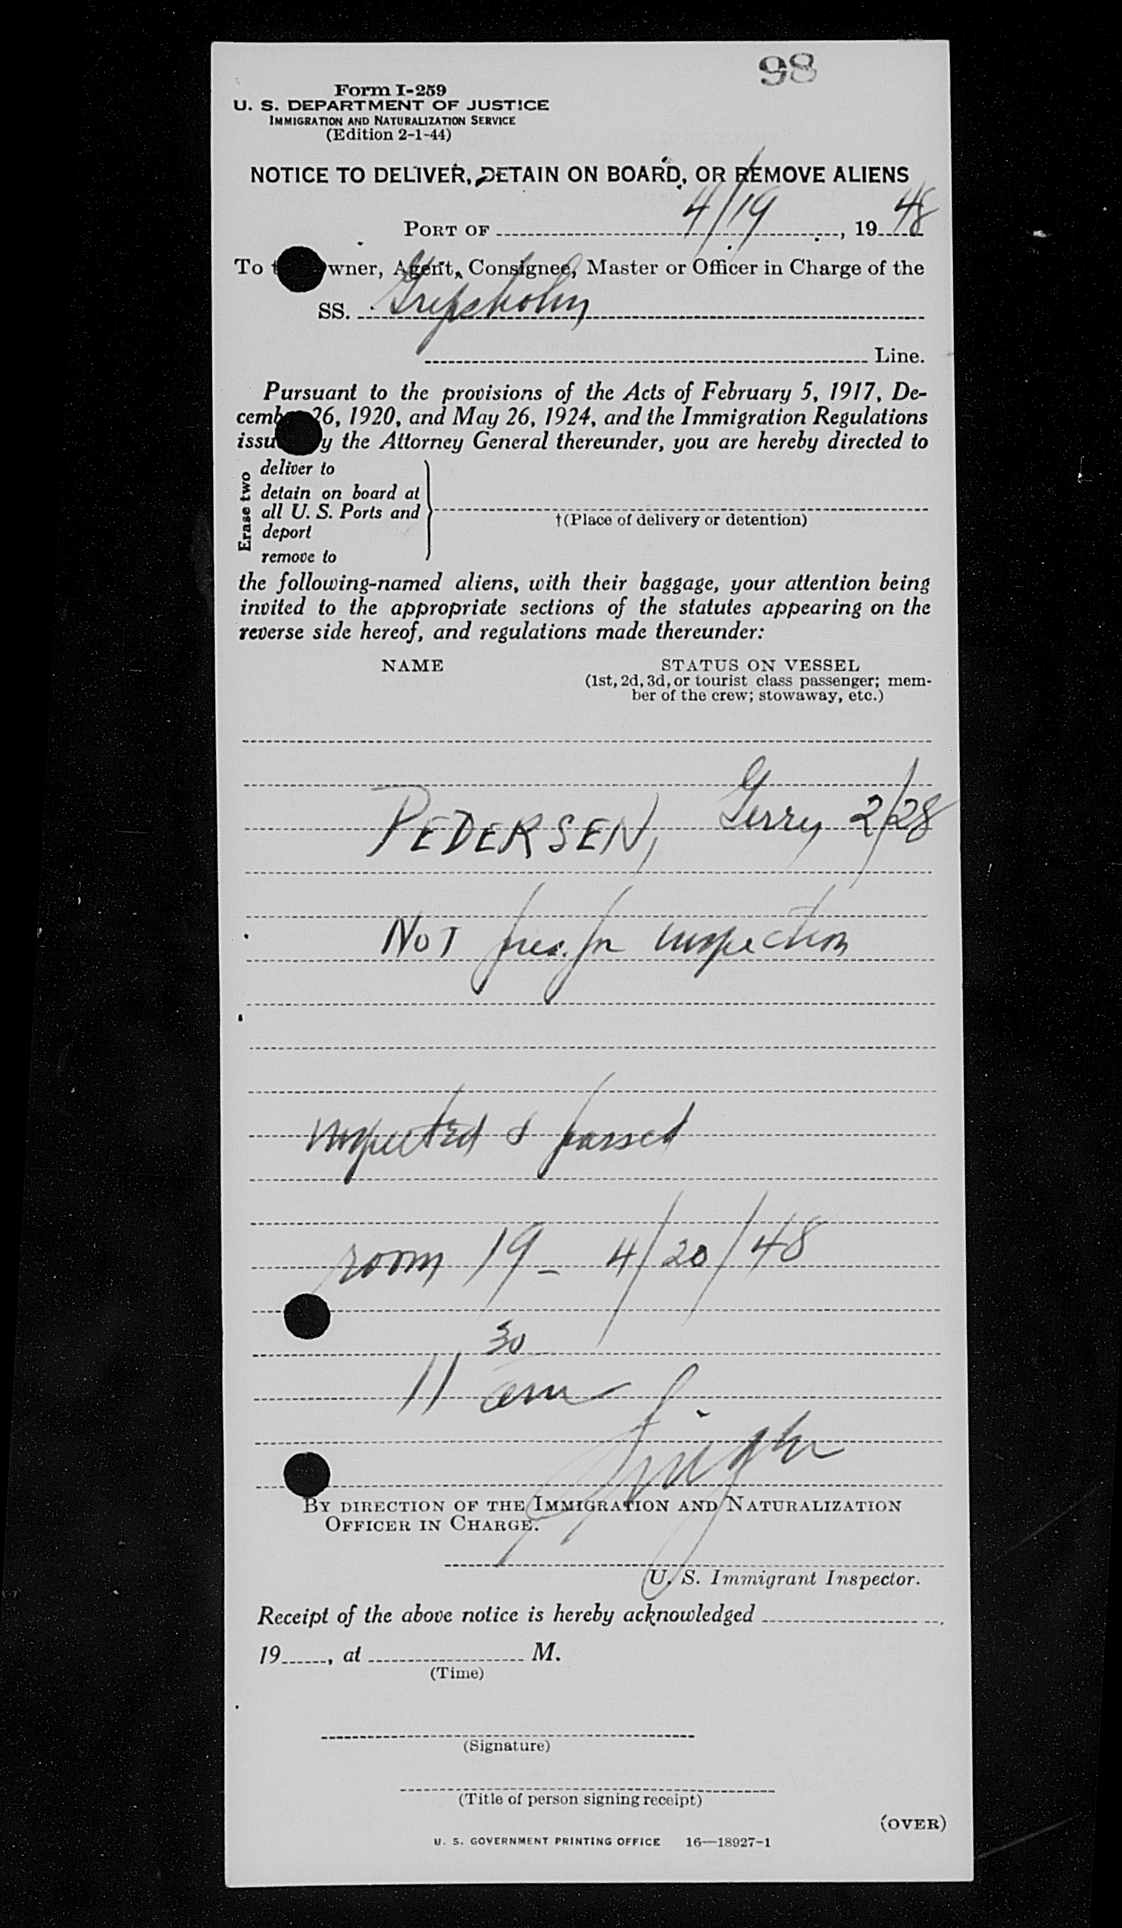 98
Form I-259
U. S. DEPARTMENT OF JUSTICE
IMMIGRATION AND NATURALIZATION SERVICE
(Edition 2-1-44)
NOTICE TO DELIVER, DETAIN ON BOARD, OR REMOVE ALIENS
PORT OF 4/19, 1948
To wner, Agent, Consignee, Master or Officer in Charge of the
SS. Gripsholm
Line.
Pursuant to the provisions of the Acts of February 5, 1917, De-
cemb 26, 1920, and May 26, 1924, and the Immigration Regulations
issu y the Attorney General thereunder, you are hereby directed to
Erase two
deliver to
detain on board at
all U. S. Ports and
deport
remove to
†(Place of delivery or detention)
the following-named aliens, with their baggage, your attention being
invited to the appropriate sections of the statutes appearing on the
reverse side hereof, and regulations made thereunder:
NAME STATUS ON VESSEL
(1st, 2d, 3d, or tourist class passenger; mem-
ber of the crew; stowaway, etc.)
PEDERSEN, Gerry 2/28
NOT pres. for inspection
inspected & passed
room 19 - 4/20/48
11 30 am
BY DIRECTION OF THE IMMIGRATION AND NATURALIZATION
OFFICER IN CHARGE.
U. S. Immigrant Inspector.
Receipt of the above notice is hereby acknowledged
19, at M.
(Time)
(Signature)
(Title of person signing receipt)
(OVER)
U. S. GOVERNMENT PRINTING OFFICE 16—18927-1